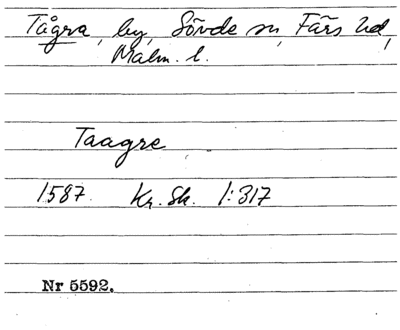 Tågra, by, Sövde sn, Färs hd,
Malm. l.
Taagre
1587. Kr. Sk. 1:317
Nr 5592.